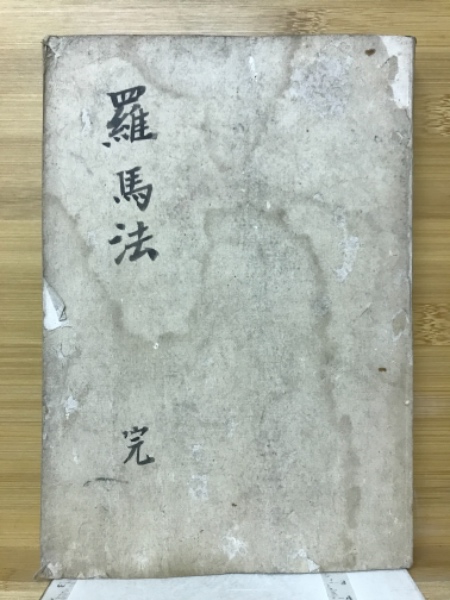 羅馬法
完